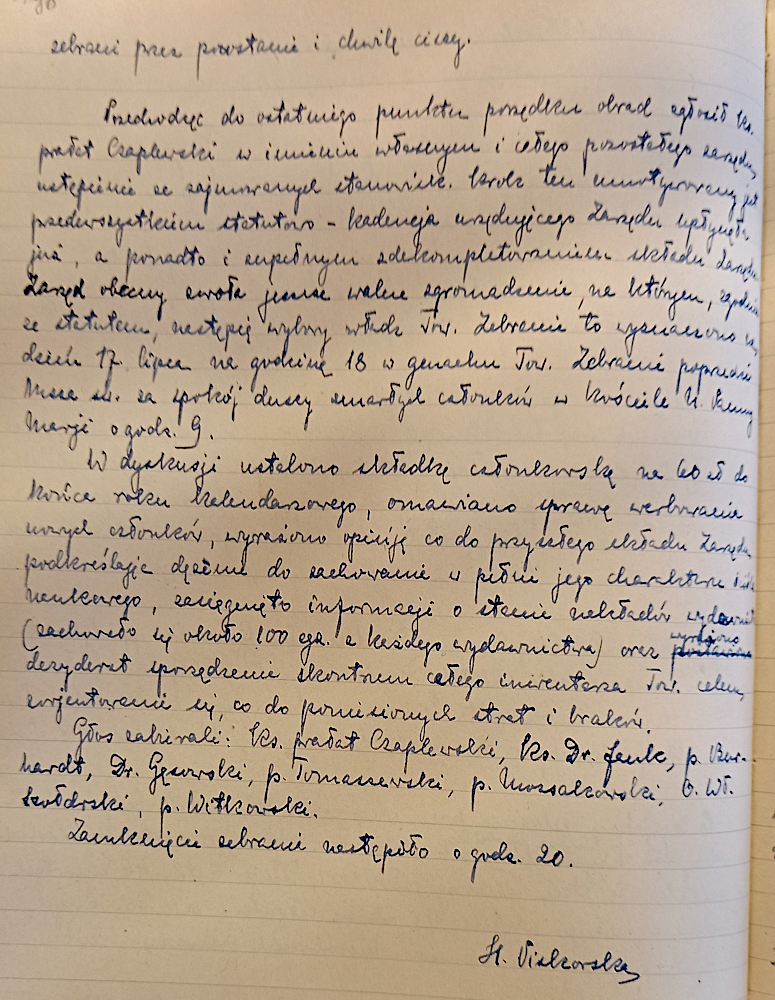 zebrani przez powstanie i chwilę ciszy.
Przechodząc do ostatniego punktu porządku obrad zgłosił ks.
prałat Czaplewski w imieniu własnym i całego pozostałego zarządu
ustąpienie ze zajmowanych stanowisk. Krok ten umotywowany jest
przedewszystkiem statutowo - kadencja urzędującego Zarządu upłynęła
już, a ponadto i zupełnym zdekompletowaniem składu Zarządu.
Zarząd obecny zwoła jeszcze walne zgromadzenie, na którym, zgodnie
ze statutem, nastąpią wybory władz Tow. Zebranie to wyznaczono na
dzień 17. lipca na godzinę 18 w gmachu Tow. Zebranie poprzedzi
Msza św. za spokój duszy zmarłych członków w kościele N. Panny
Marji o godz. 9.
W dyskusji ustalono składkę członkowską na 60 zł do
końca roku kalendarzowego, omawiano sprawę werbowania
nowych członków, wyrażono opinję co do przyszłego składu Zarządu
podkreślając dążenie do zachowania w pełni jego charakteru
naukowego, zasięgnięto informacji o stanie nakładów wydawnictw
(zachowało się około 100 egz. z każdego wydawnictwa) oraz wyrażono
dezyderat sporządzenia skontrum całego inwentarza Tow. celem
zorjentowania się, co do poniesionych strat i braków.
Głos zabierali: ks. prałat Czaplewski, ks. Dr. Jank, p. Bur-
hardt, Dr. Gąsowski, p. Tomaszewski, p. Mossakowski, O. Wł.
Szołdrski, p. Witkowski.
Zamknięcie zebrania nastąpiło o godz. 20.